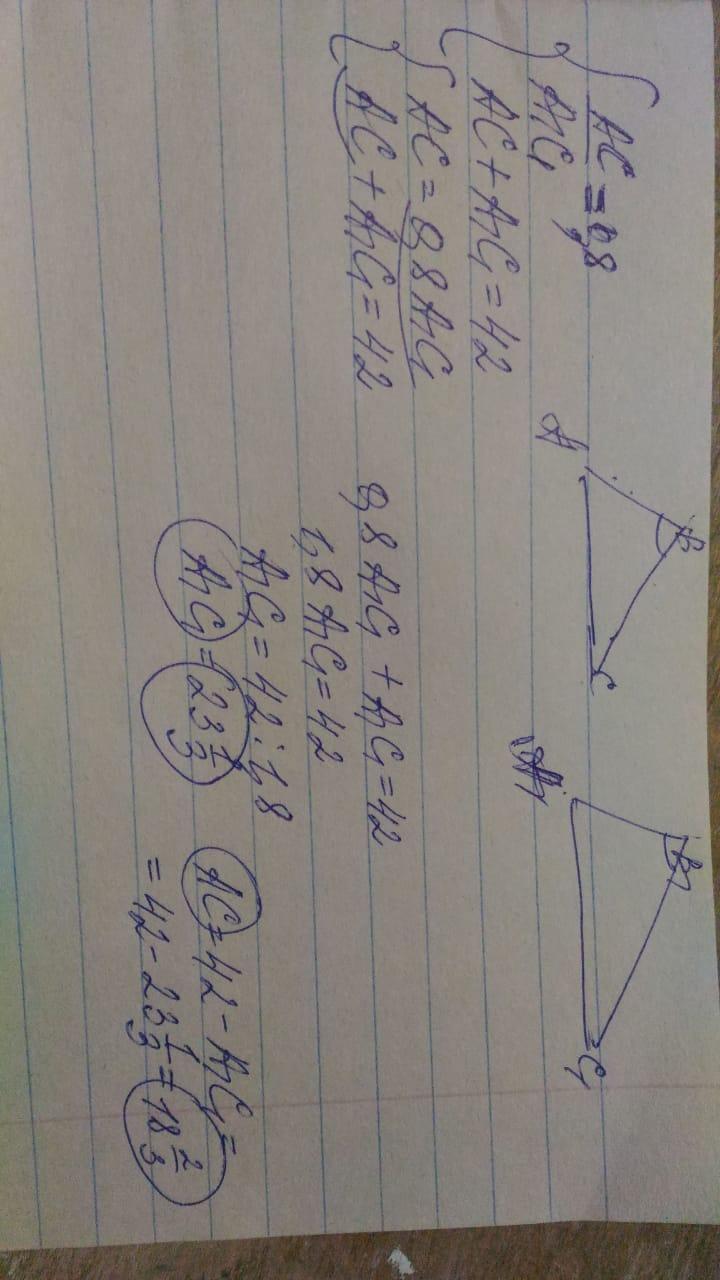 AC/A₁C₁ = 0,8
AC + A₁C₁ = 42
AC = 0,8 A₁C₁
AC + A₁C₁ = 42
A B C
A₁ B₁ C₁
0,8 A₁C₁ + A₁C₁ = 42
1,8 A₁C₁ = 42
A₁C₁ = 42 : 1,8
A₁C₁ = 23 1/3
AC = 42 - A₁C₁ =
= 42 - 23 1/3 = 18 2/3